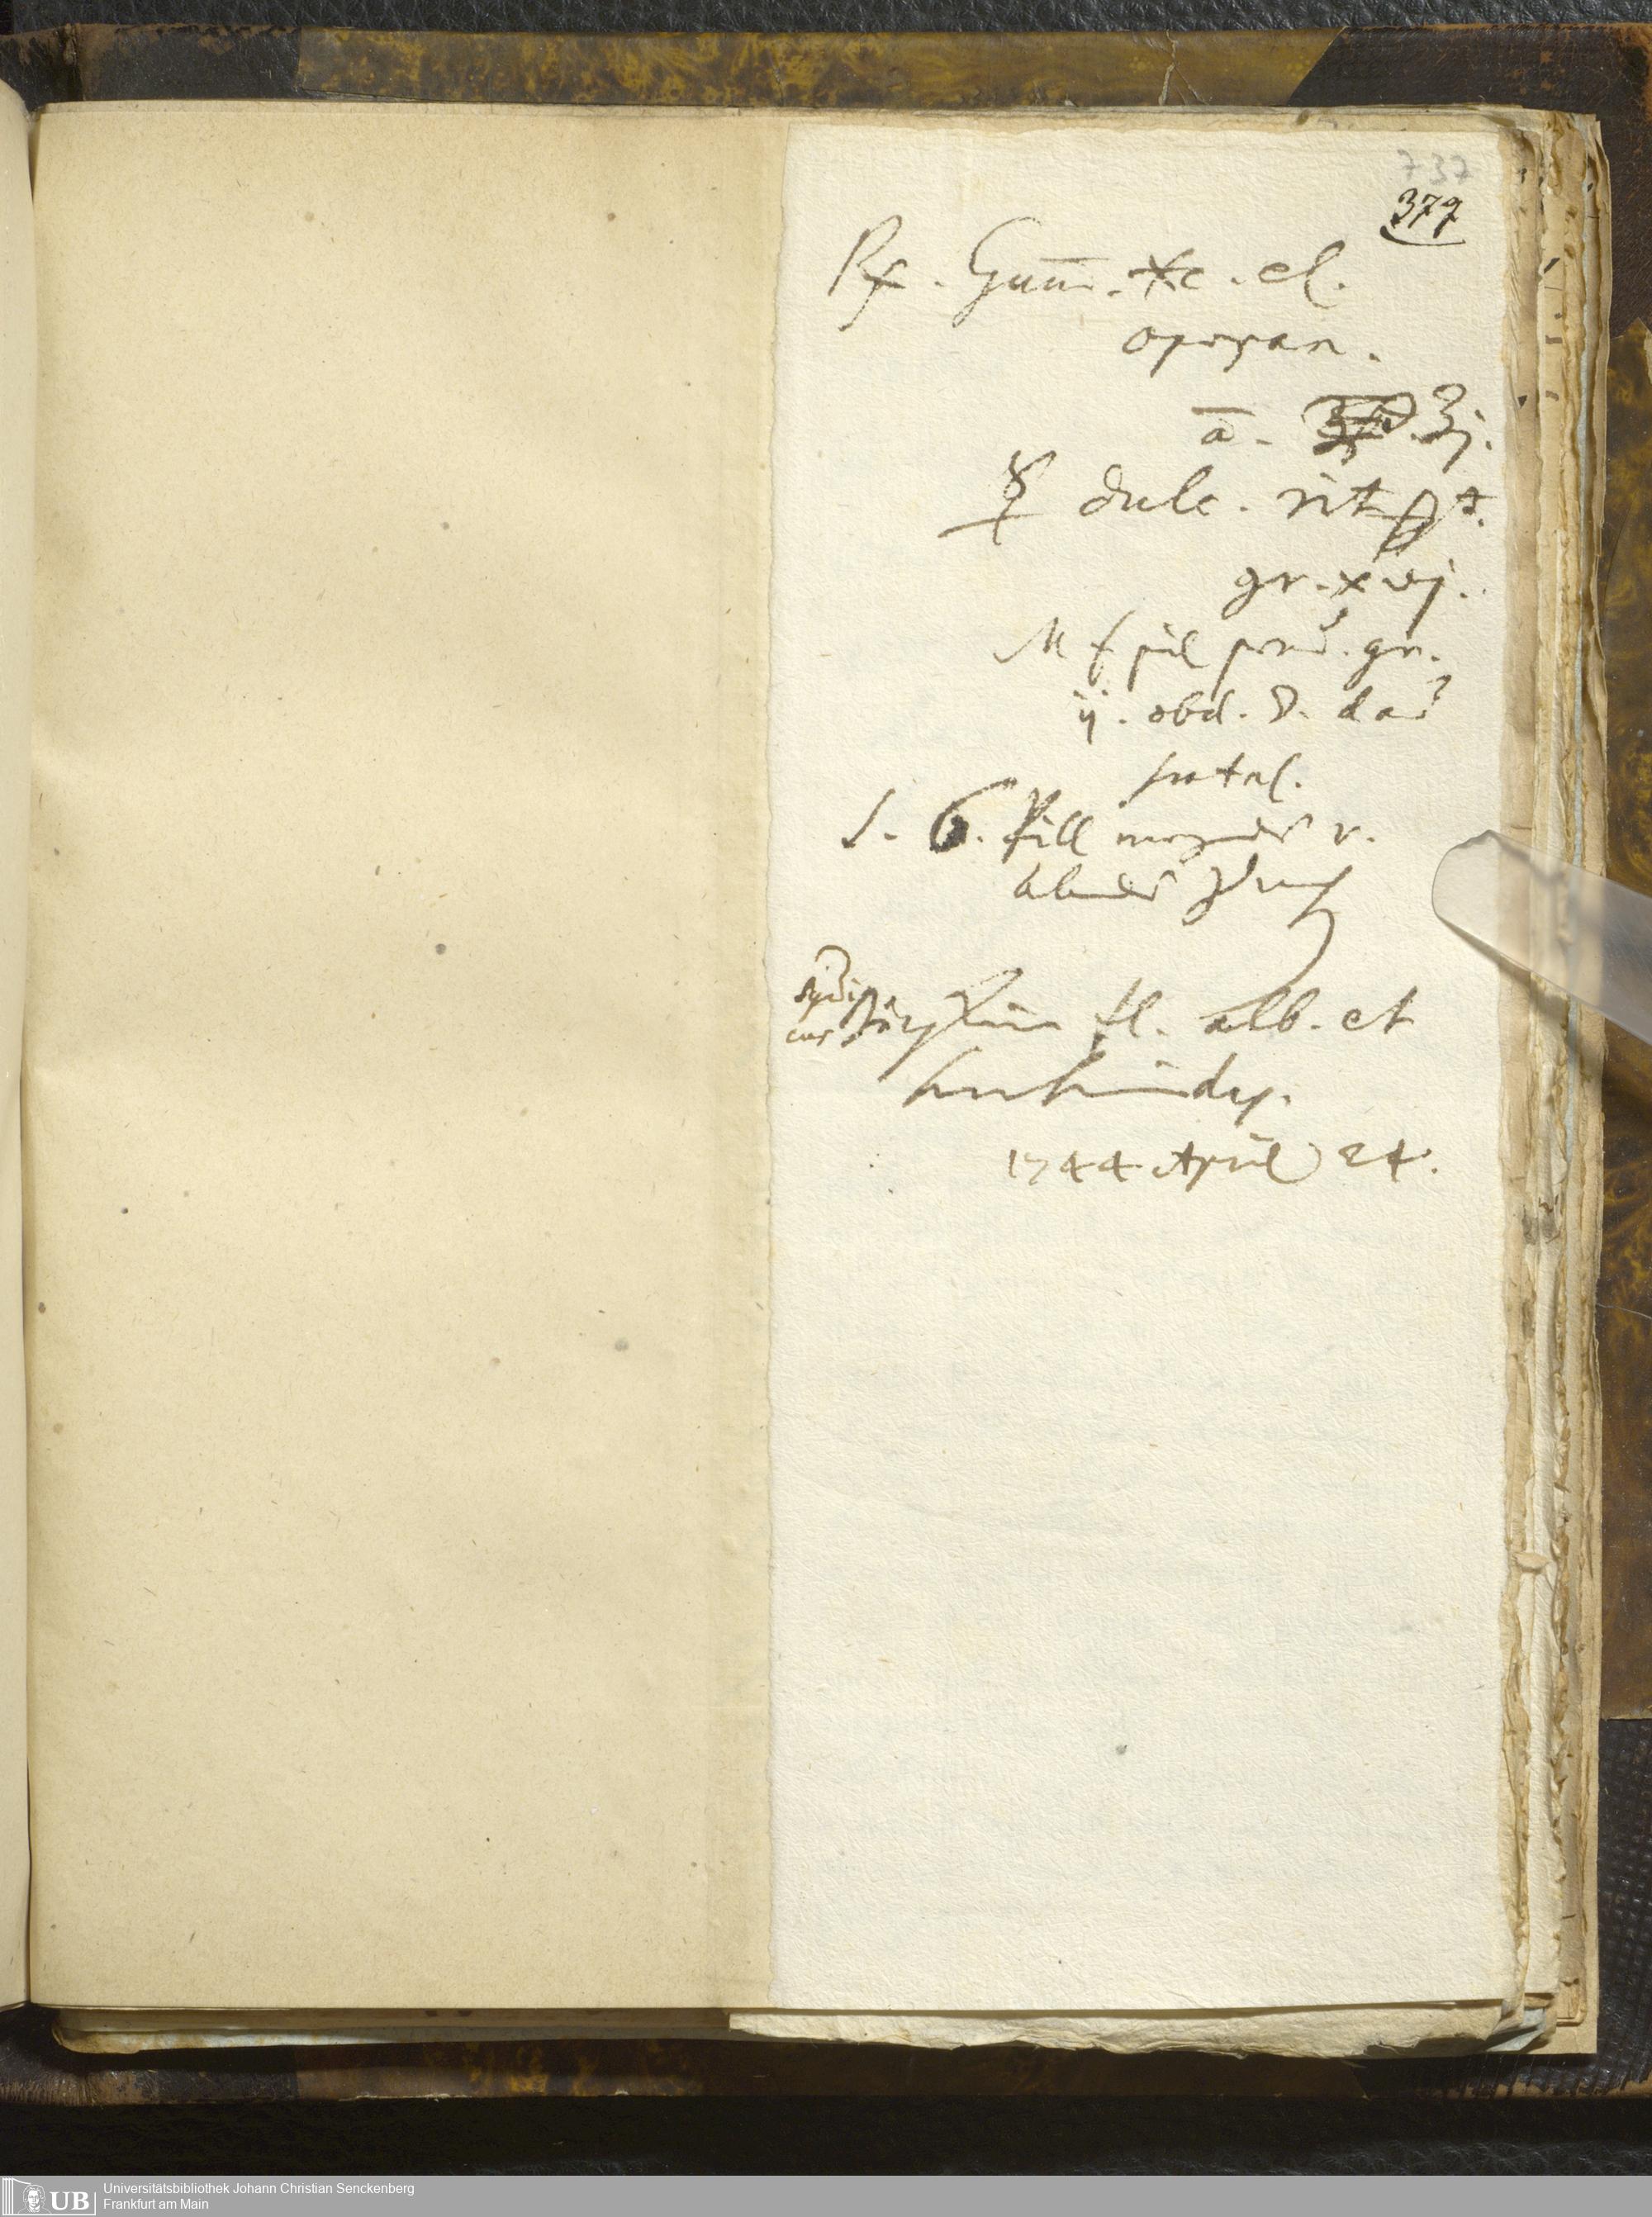 737
379
Rx. Gum̄. ✶c. el.
opopan.
ā. ʒj.
☿ dulc. rit ppt.
gr. xvj.
M f pil pond. gr.
ij. obd. D. dad
S. 6. Pill morgends v.
abends
fl. alb. et
1744 April 24.
UB
Universitätsbibliothek Johann Christian Senckenberg
Frankfurt am Main